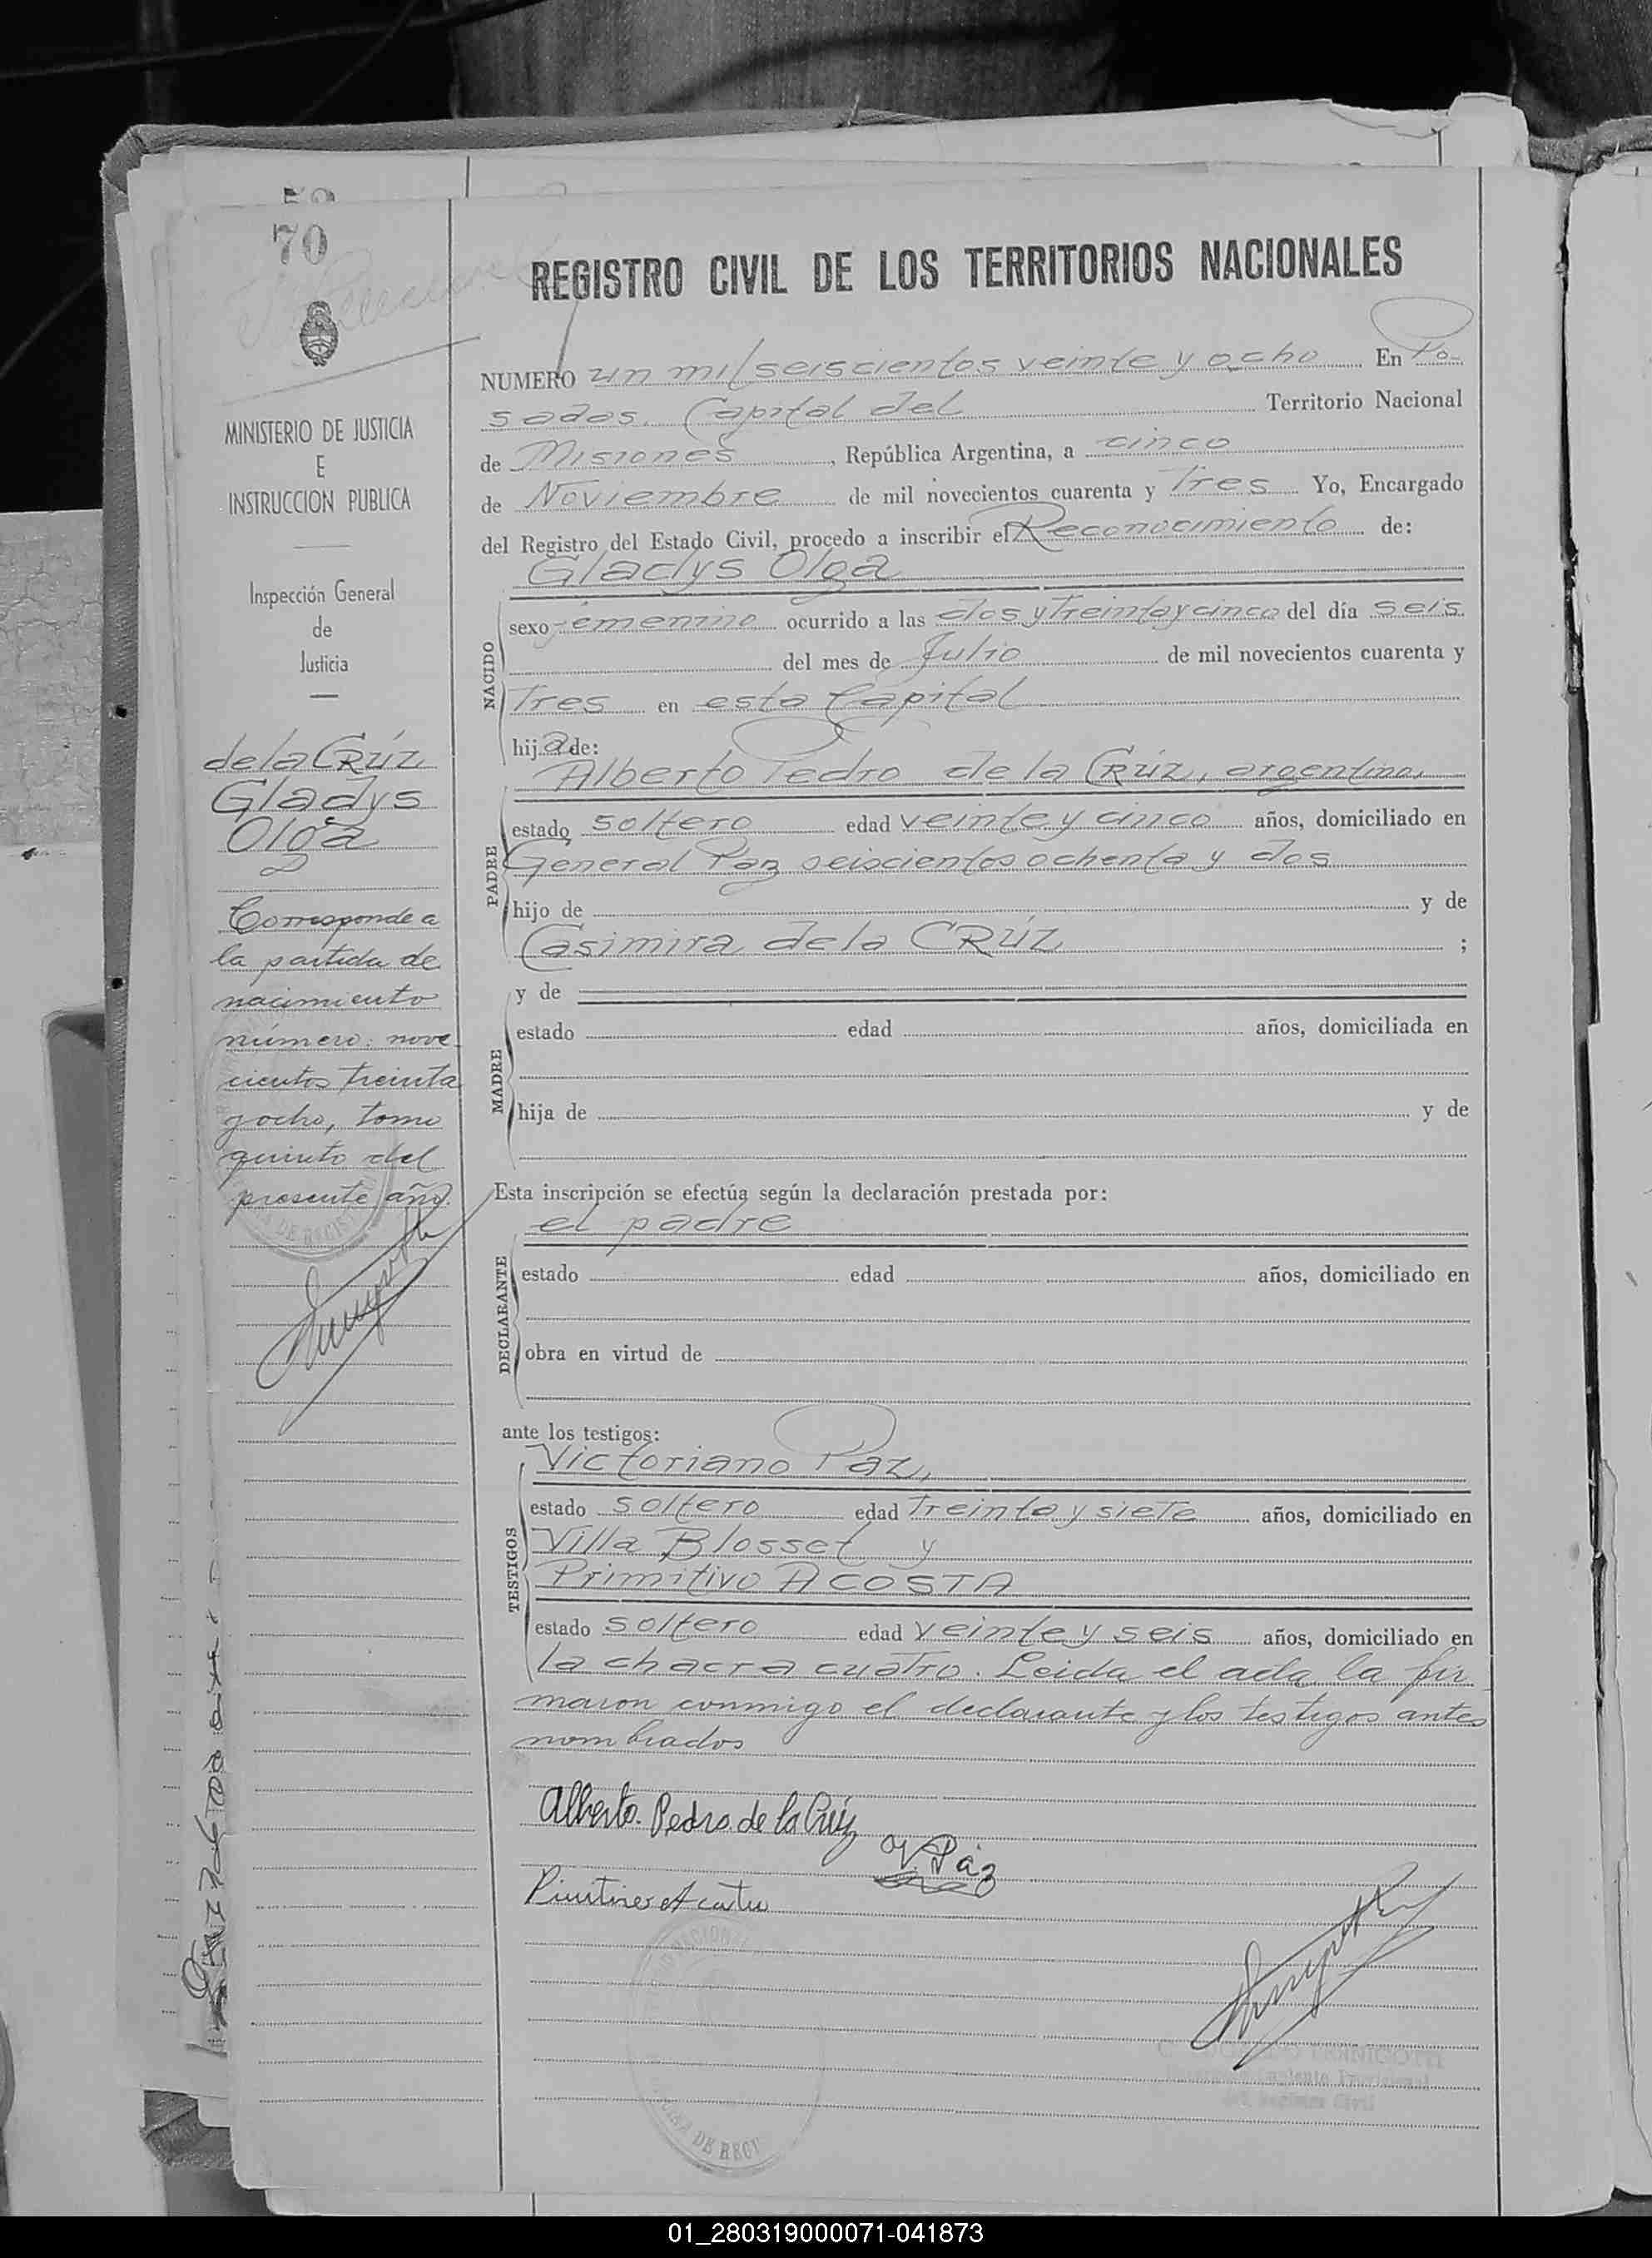 70
REGISTRO CIVIL DE LOS TERRITORIOS NACIONALES
NUMERO un mil seiscientos veinte y ocho En Po-
sadas. Capital del Territorio Nacional
de Misiones, República Argentina, a cinco
de Noviembre de mil novecientos cuarenta y Tres Yo, Encargado
del Registro del Estado Civil, procedo a inscribir el Reconocimiento de:
Gladys Olga
NACIDO
sexo femenino ocurrido a las dos y Treinta y cinco del día seis
del mes de Julio de mil novecientos cuarenta y
Tres en esta Capital
hija de:
Alberto Pedro de la CRúz, argentino,
PADRE
estado soltero edad veinte y cinco años, domiciliado en
General Paz seiscientos ochenta y dos
hijo de y de
Casimira de la CRúz ;
y de
MADRE
estado edad años, domiciliada en
hija de y de
Esta inscripción se efectúa según la declaración prestada por:
el padre
DECLARANTE
estado edad años, domiciliado en
obra en virtud de
ante los testigos:
Victoriano Paz,
TESTIGOS
estado soltero edad Treinta y siete años, domiciliado en
Villa Blosset y
Primitivo ACOSTA
estado soltero edad veinte y seis años, domiciliado en
la chacra cuatro. Leida el acta la fir-
maron conmigo el declarante y los testigos antes
nombrados
Alberto. Pedro. de la Crúz
V. Páz
MINISTERIO DE JUSTICIA
E
INSTRUCCION PUBLICA
Inspección General
de
Justicia
de la CRúz
Gladys
Olga
Corresponde a
la partida de
nacimiento
número: nove-
cientos treinta
y ocho, tomo
quinto del
presente año.
01_280319000071-041873